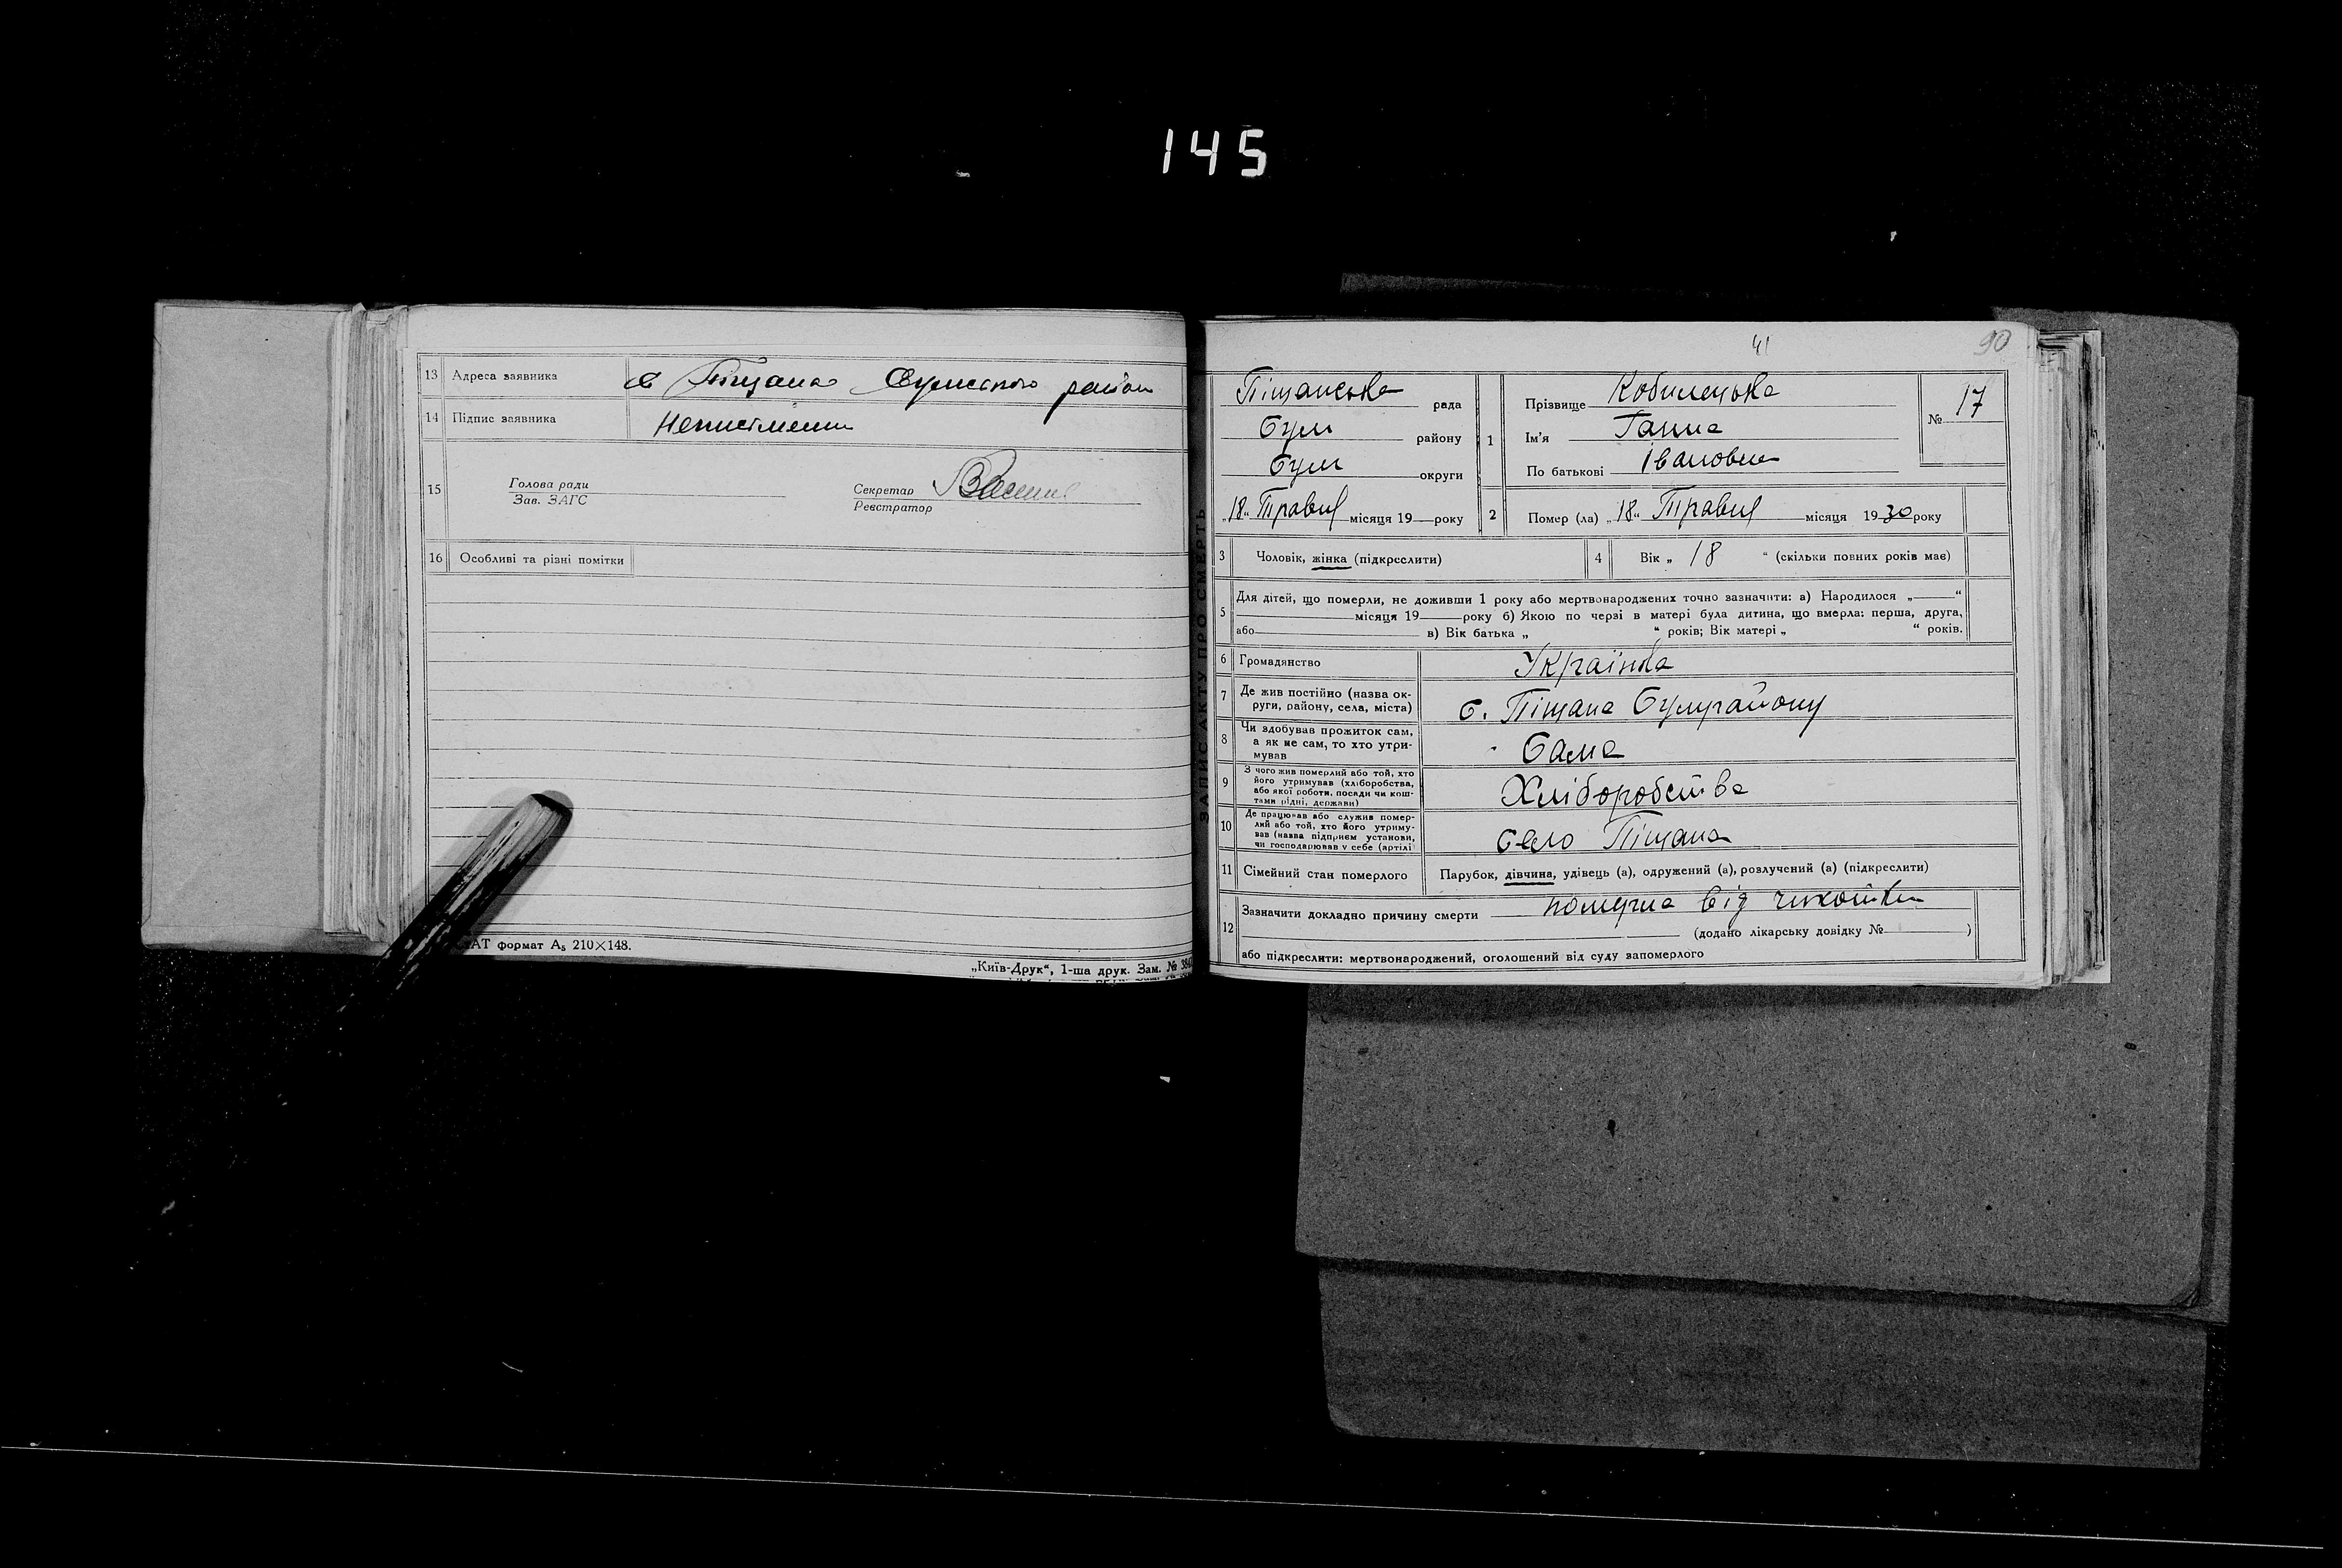 145
13 Адреса заявника с Піщана Сумського район
14 Підпис заявника Неписьмени
15 Голова ради
Зав. ЗАГС
Секретар
Реєстратор
16 Особливі та різні помітки
АТ формат А5 210×148.
„Київ-Друк“, 1-ша друк. Зам. №
ЗАПИС АКТУ ПРО СМЕРТЬ
41
90
Піщанська рада
Сум району
Сум округи
„18“ Травня місяця 19 року
1 Прізвище Кобилецька
Ім'я Ганна
По батькові Івановна
№ 17
2 Помер (ла) „18“ Травня місяця 1930 року
3 Чоловік, жінка (підкреслити)
4 Вік „ 18 “ (скільки повних років має)
5 Для дітей, що померли, не доживши 1 року або мертвонароджених точно зазначити: а) Народилося „ “
місяця 19 року б) Якою по черзі в матері була дитина, що вмерла: перша, друга,
або в) Вік батька „ “ років; Вік матері „ “ років.
6 Громадянство Українка
7 Де жив постійно (назва ок-
руги, району, села, міста) с. Піщана Сумрайону
8 Чи здобував прожиток сам,
а як не сам, то хто утри-
мував Сама
9 З чого жив померлий або той, хто
його утримував (хліборобства,
або якої роботи, посади чи кош-
тами рідні, держави) Хліборобства
10 Де працював або служив помер-
лий або той, хто його утриму-
вав (назва підприєм установи,
чи господарював у себе (артілі) село Піщана
11 Сімейний стан померлого Парубок, дівчина, удівець (а), одружений (а), розлучений (а) (підкреслити)
12 Зазначити докладно причину смерти померла від чихотки
(додано лікарську довідку № )
або підкреслити: мертвонароджений, оголошений від суду запомерлого